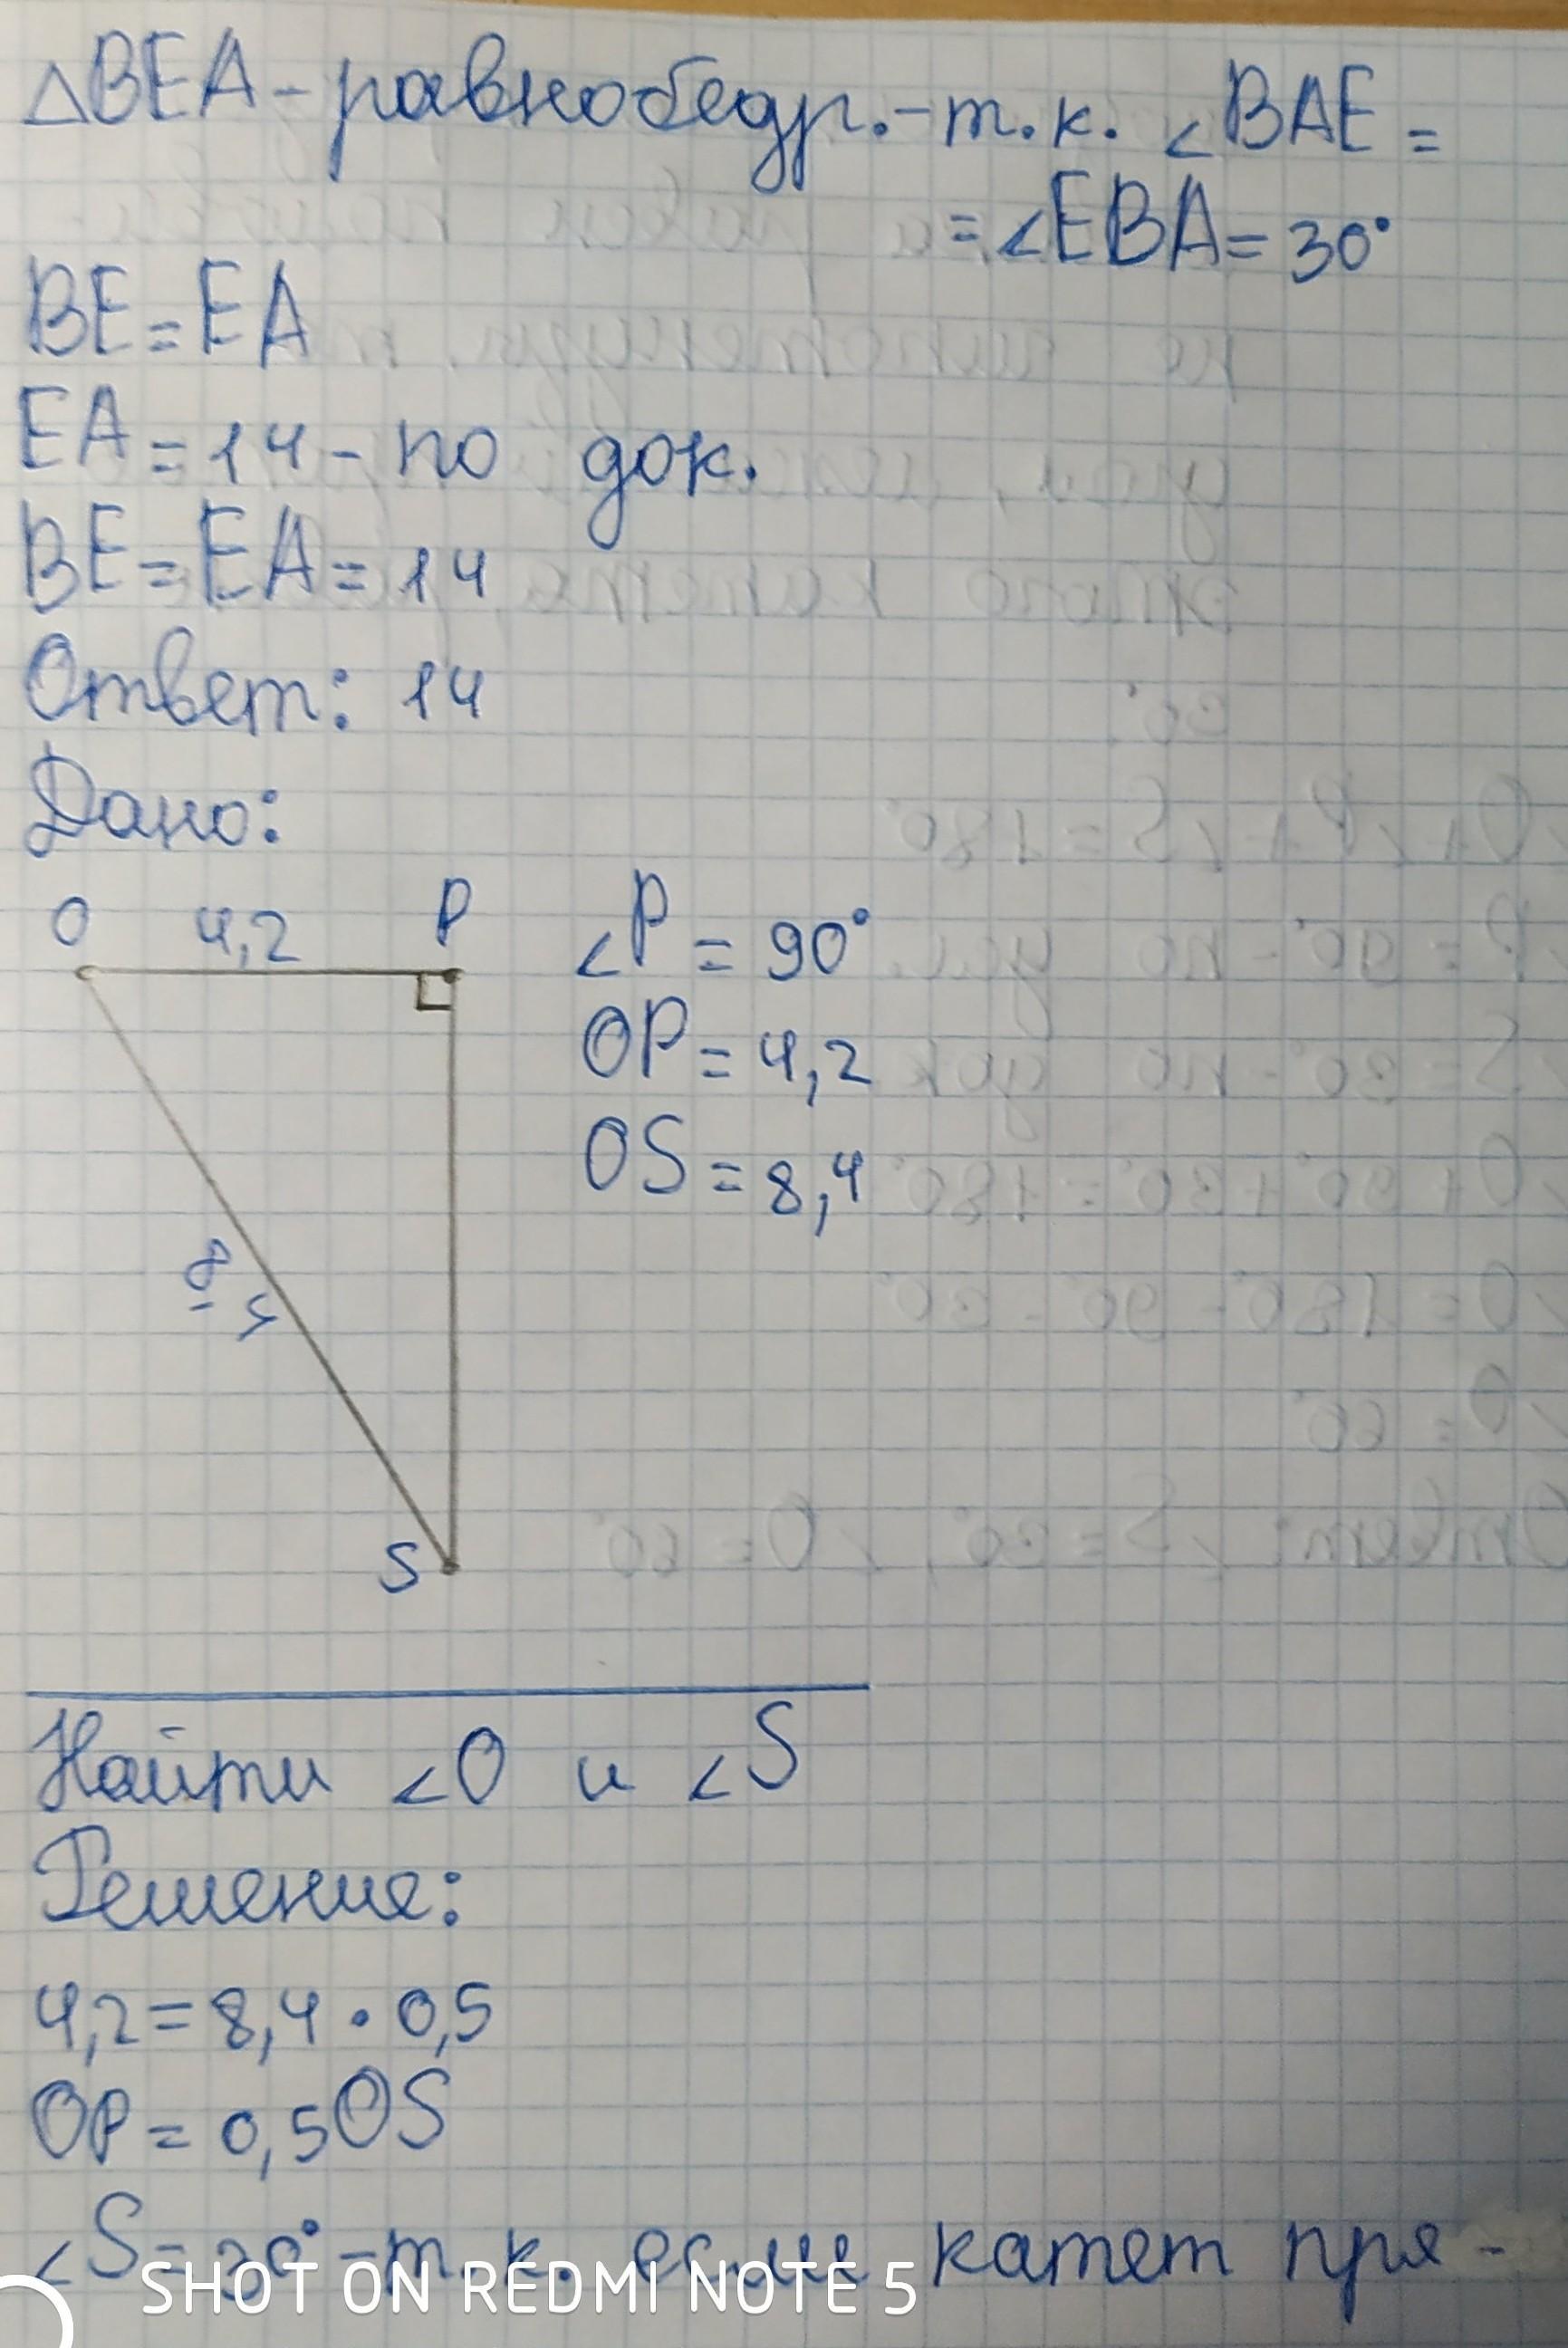 △BEA - равнобедр. - т.к. ∠BAE =
= ∠EBA = 30°
BE = EA
EA = 14 - по док.
BE = EA = 14
Ответ: 14
Дано:
O 4,2 P
∠P = 90°
OP = 4,2
OS = 8,4
8,4
S
Найти ∠O и ∠S
Решение:
4,2 = 8,4 · 0,5
OP = 0,5OS
∠S = 30° - т.к. если катет пря-
SHOT ON REDMI NOTE 5